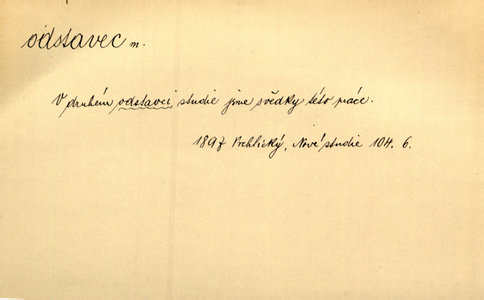 odstavec m.
V druhém odstavci studie jsme svědky této práce.
1897 Vrchlický, Nové studie 104. 6.